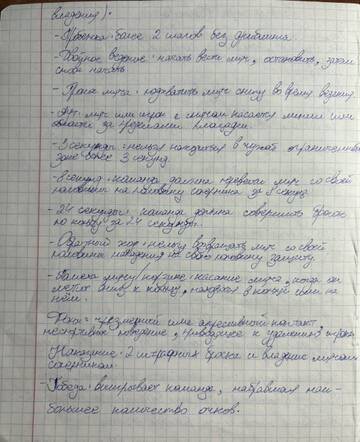 владения):
- Пробежка: более 2 шагов без дриблинга.
- Двойное ведение: начать вести мяч, остановить, затем
снова начать
- Пронос мяча: подхватить мяч снизу во время ведения
- Аут: мяч или игрок с мячом касаются линии или
области за пределами площадки.
- 3 секунды: нельзя находиться в чужой ограниченной
зоне более 3 секунд.
- 8 секунд: команда должна перевести мяч со своей
половины на половину соперника за 8 секунд.
- 24 секунды: команда должна совершить бросок
по кольцу за 24 секунды.
- Обратный ход: нельзя возвращать мяч со своей
половины нападения на свою половину защиты.
- Помеха мячу/корзине: касание мяча, когда он
летит вниз к кольцу, находясь в корзине или на
нём.
Фол: чрезмерный или агрессивный контакт,
неспортивное поведение, приводящее к удалению игрока
Наказание: 2 штрафных броска и владение мячом
соперником.
Победа: выигрывает команда, набравшая наи-
большее количество очков.